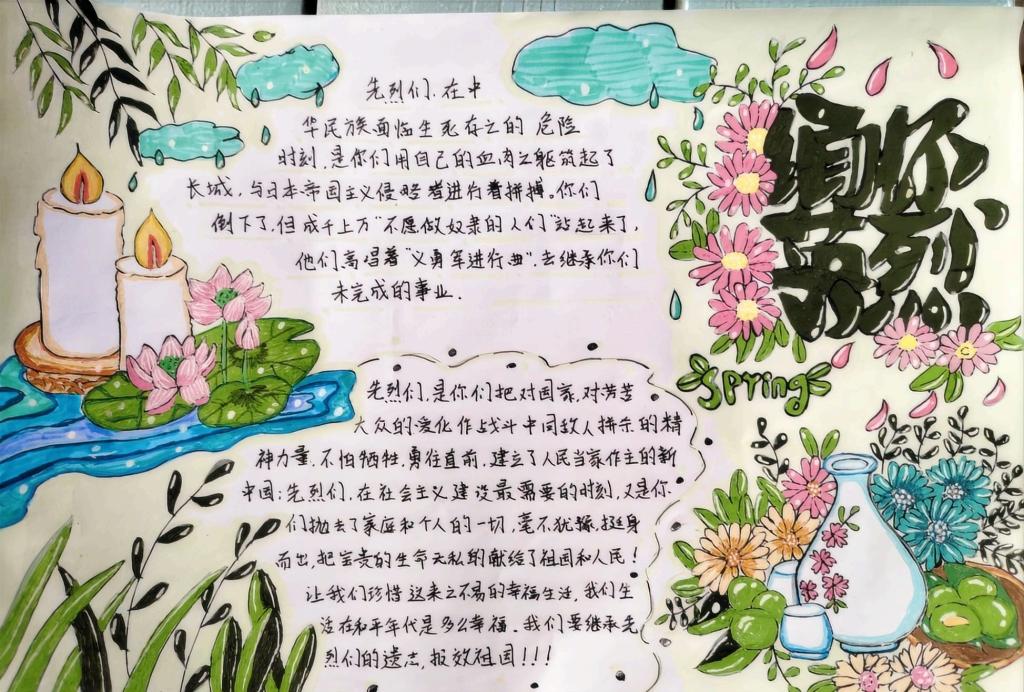 先烈们，在中
华民族面临生死存亡的危险
时刻，是你们用自己的血肉之躯筑起了
长城，与日本帝国主义侵略者进行着拼搏。你们
倒下了，但成千上万“不愿做奴隶的人们”站起来了，
他们高唱着“义勇军进行曲”，去继承你们
未完成的事业．
缅怀
英烈
spring
先烈们，是你们把对国家，对劳苦
大众的爱化作战斗中同敌人拼杀的精
神力量，不怕牺牲，勇往直前，建立了人民当家作主的新
中国；先烈们，在社会主义建设最需要的时刻，又是你
们抛去了家庭和个人的一切，毫不犹豫，挺身
而出，把宝贵的生命无私的献给了祖国和人民！
让我们珍惜这来之不易的幸福生活，我们生
活在和平年代是多么幸福．我们要继承先
烈们的遗志，报效祖国！！！